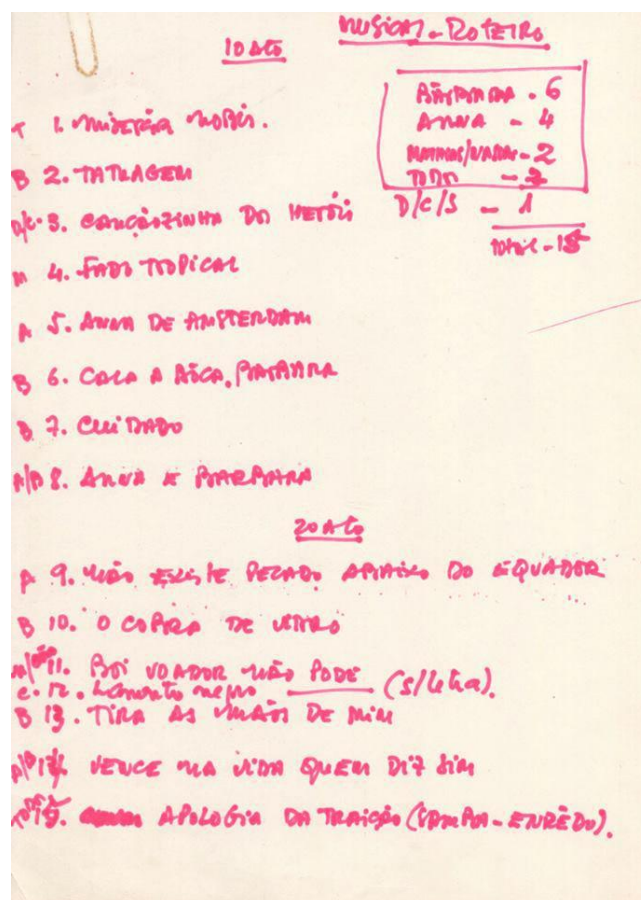 MUSICAL - ROTEIRO
1º ATO
BÁRBARA - 6
ANNA - 4
MATHIAS/ - 2
TODOS -
D/C/S - 1
TOTAL - 15
T 1. MISERERE NOBIS.
B 2. TATUAGEM
D/C. 3. CANÇÃOZINHA DO HERÓIS
M 4. FADO TROPICAL
A 5. ANNA DE AMSTERDAM
B 6. CALA A BÔCA, BÁRBARA
B 7. CUIDADO
A/B 8. ANNA E BARBARA
2º ATO
A 9. NÃO EXISTE PECADO ABAIXO DO EQUADOR
B 10. O COBRA DE VIDRO
11. BOI VOADOR NÃO PODE
C. 12. Lamento negro (s/letra).
B 13. TIRA AS MÃOS DE MIM
A/B 14. VENCE NA VIDA QUEM DIZ SIM
TODOS 15. APOLOGIA DA TRAIÇÃO (SAMBA-ENRÊDO).